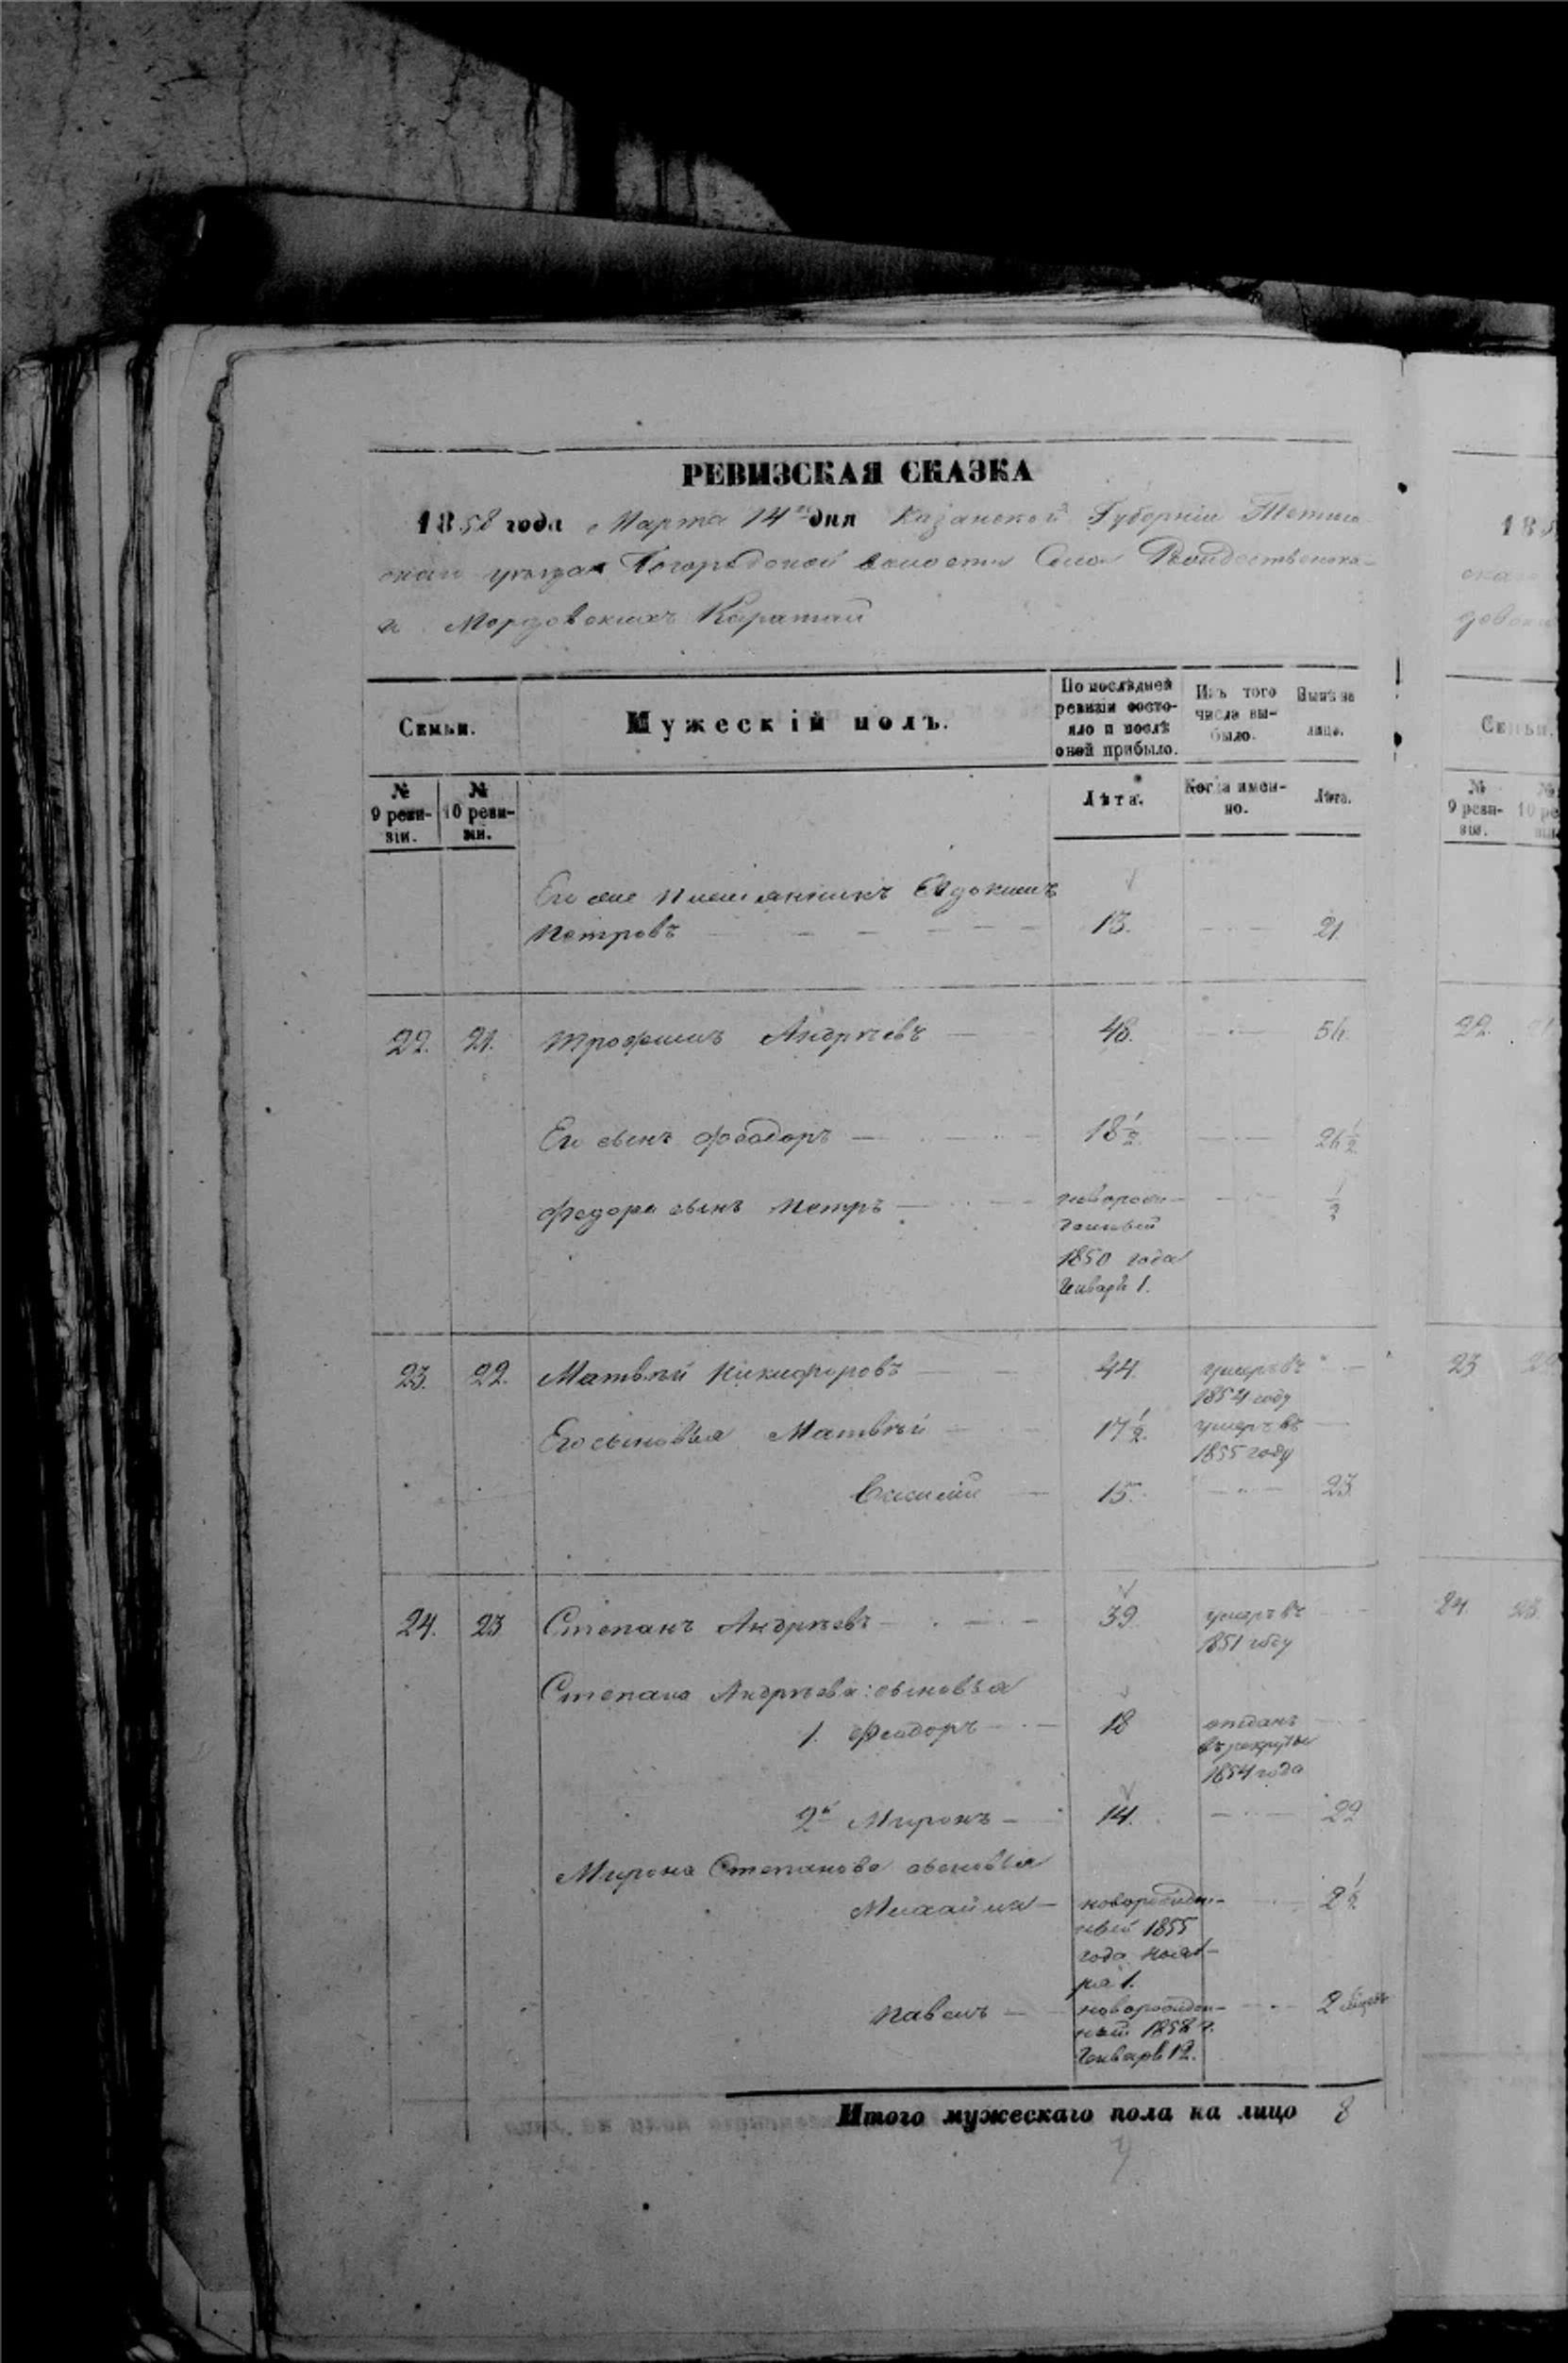 РЕВИЗСКАЯ СКАЗКА
1858 года Марта 14го дня Казанской Губерніи Тетюш-
скаго уѣзда Богородской волости Села Рождественска-
а Мордовскихъ Каратай
Семьи.
Мужескій полъ.
По послѣдней ревизіи состо-яло и послѣ оной прибыло.
Изъ того числа вы-было.
Нынѣ на лицо.
№ 9 реви-зіи.
№ 10 реви-зіи.
Лѣта.
Когда имен-но.
Лѣта.
Его же племянникъ Евдокимъ
Петровъ 13. 21
22. 21. Трофимъ Андрѣевъ 48. 56.
Его сынъ Феодоръ 18½ 26½
Федора сынъ Петръ новорож-
денный
1850 года
Генваря 1.
23. 22. Матвѣй Никифоровъ 44. умеръ въ
1854 году
Его сыновья Матвѣй 17½ умеръ въ
1855 году
Василій 15. 23
24. 23 Степанъ Андрѣевъ 39 умеръ въ
1851 году
Степана Андрѣева сыновья
1. Феодоръ 18 отданъ
въ рекруты
1854 года
2й Миронъ 14. 22
Мирона Степанова сыновья
Михайла новорожден- 2½
ный 1855
года нояб-
ря 1.
Павелъ новорожден- 2
ный 1858 г.
Генваря 12.
Итого мужескаго пола на лицо 8
185
скаго
довски
Семьи.
№ 9 реви-зіи.
22.
23
24.